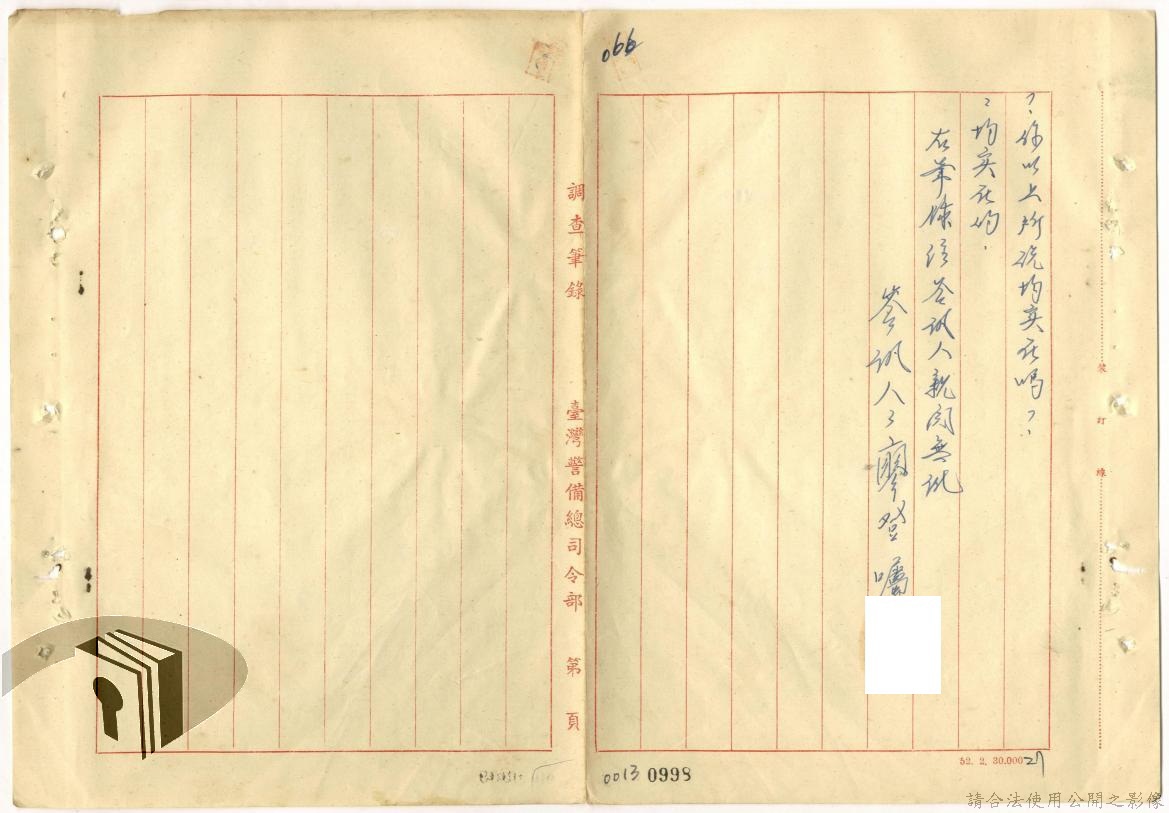 066
?:你以上所说均实在吗?:
:均实在的.
右筆錄經答訊人親閱無訛
答訊人:廖登囑
調查筆錄 臺灣警備總司令部 第 頁
裝訂線
52. 2. 30.000
27
0013 0998
請合法使用公開之影像